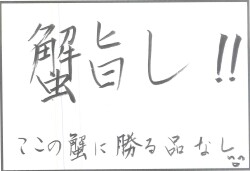 蟹旨し!!
ここの蟹に勝る品なし